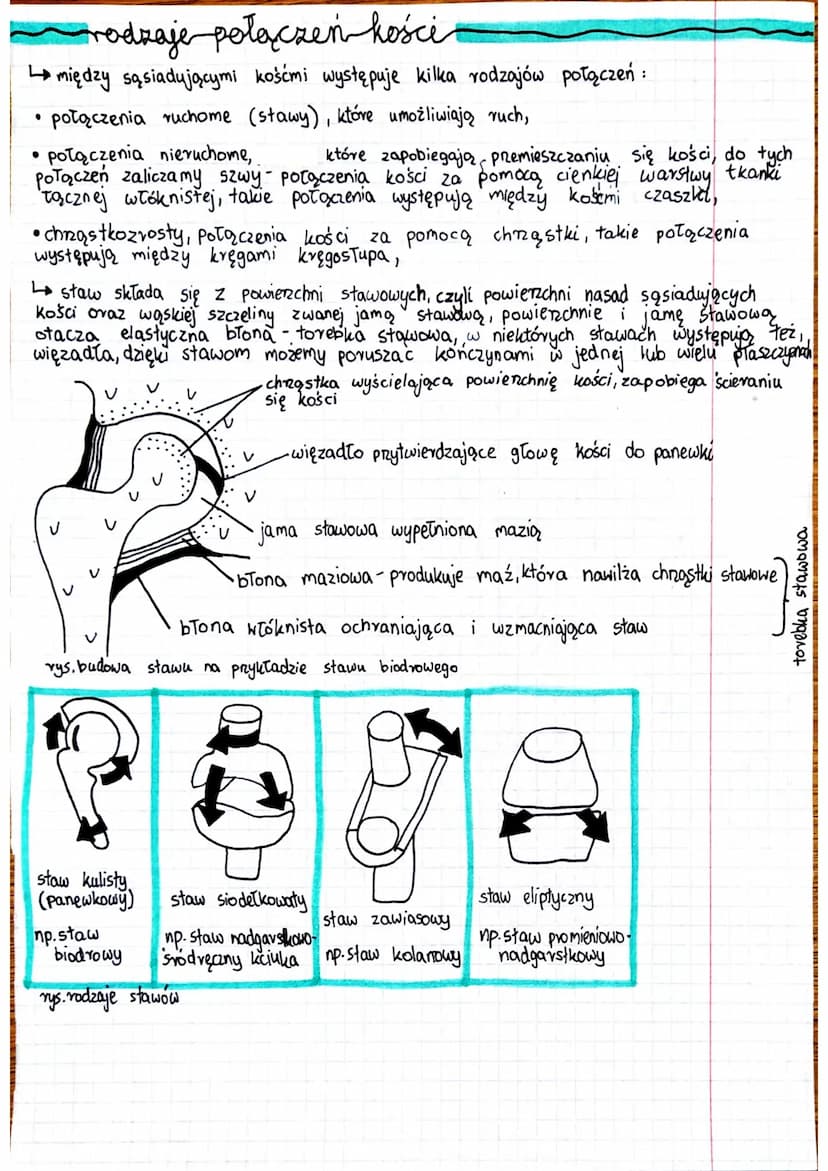 rodzaje połączeń kości
↳ między sąsiadującymi kośćmi występuje kilka rodzajów połączeń:
• połączenia ruchome (stawy), które umożliwiają ruch,
• połączenia nieruchome, które zapobiegają przemieszczaniu się kości, do tych
połączeń zaliczamy szwy - połączenia kości za pomocą cienkiej warstwy tkanki
łącznej włóknistej, takie połączenia występują między kośćmi czaszki,
• chrząstkozrosty, połączenia kości za pomocą chrząstki, takie połączenia
występują między kręgami kręgosłupa,
↳ staw składa się z powierzchni stawowych, czyli powierzchni nasad sąsiadujących
kości oraz wąskiej szczeliny zwanej jamą stawową, powierzchnie i jamę stawową
otacza elastyczna błona - torebka stawowa, w niektórych stawach występują też,
więzadła, dzięki stawom możemy poruszać kończynami w jednej lub wielu płaszczyznach
chrząstka wyścielająca powierzchnię kości, zapobiega ścieraniu
się kości
więzadło przytwierdzające głowę kości do panewki
jama stawowa wypełniona mazią
błona maziowa - produkuje maź, która nawilża chrząstki stawowe
błona włóknista ochraniająca i wzmacniająca staw
torebka stawowa
rys. budowa stawu na przykładzie stawu biodrowego
staw kulisty
(panewkowy)
np. staw
biodrowy
staw siodełkowaty
np. staw nadgarstkowo-
śródręczny kciuka
staw zawiasowy
np. staw kolanowy
staw eliptyczny
np. staw promieniowo-
nadgarstkowy
rys. rodzaje stawów